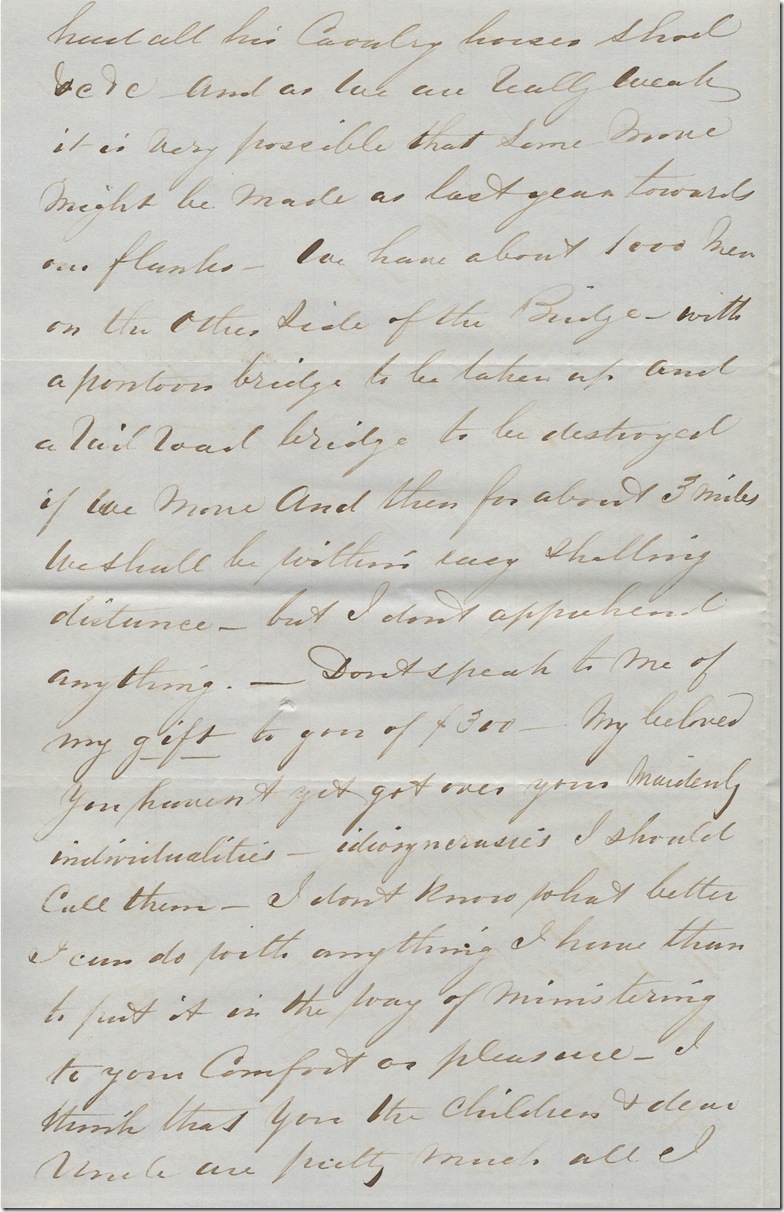 had all his Cavalry horses shod
&c &c And as we are really weak
it is very possible that some move
might be made as last year towards
our flanks – We have about 1000 men
on the other side of the Bridge – with
a pontoon bridge to be taken up and
a rail road bridge to be destroyed
if we move And then for about 3 miles
we shall be within easy shelling
distance – but I dont apprehend
anything. — Dont speak to me of
my gift to you of $300 – My beloved
You havent yet got over your maidenly
individualities – idiosyncrasies I should
Call them – I dont know what better
I can do with anything I have than
to put it in the way of ministering
to your Comfort or pleasure – I
think that You the children & dear
Uncle are pretty much all I